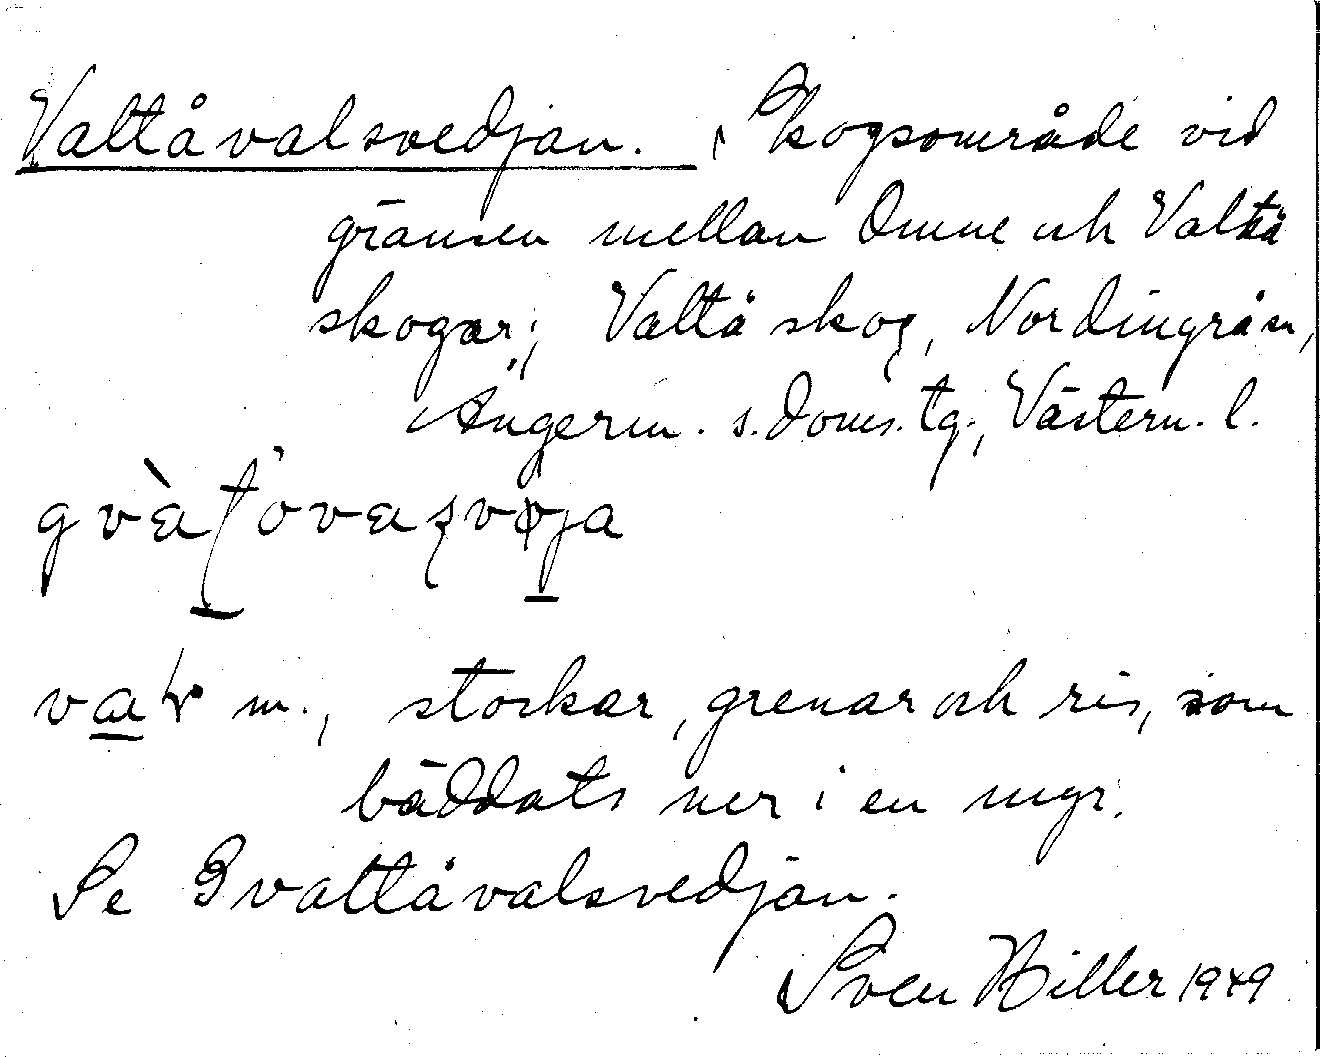 Valtåvalsvedjan. Skogsområde vid
gränsen mellan Omne och Valtå
skogar; Valtå skog, Nordingrå sn,
Ångerm. s. doms. tg., Västern. l.
m., stockar, grenar och ris, som
bäddats ner i en myr.
Se Gvaltåvalsvedjan.
Sven Hiller 1949